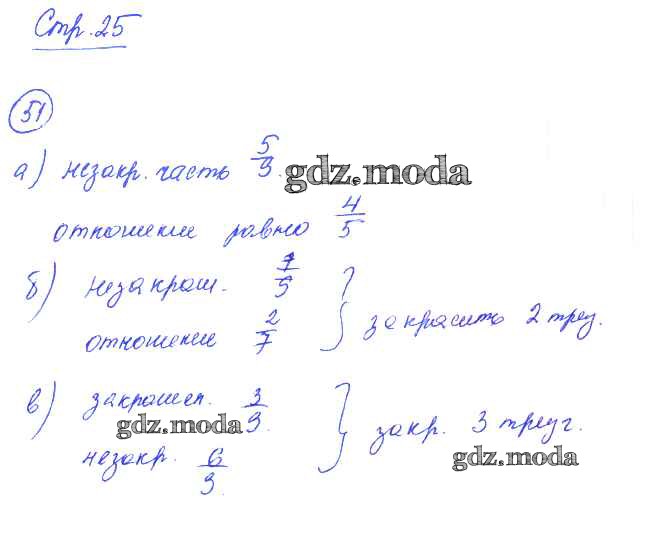 Стр. 25
51
а) незакр. часть 5/9.
gdz.moda
отношение равно 4/5
б) незакраш. 7/9
отношение 2/7
закрасить 2 треуг.
в) закрашен. 3/9.
gdz.moda
незакр. 6/9.
закр. 3 треуг.
gdz.moda